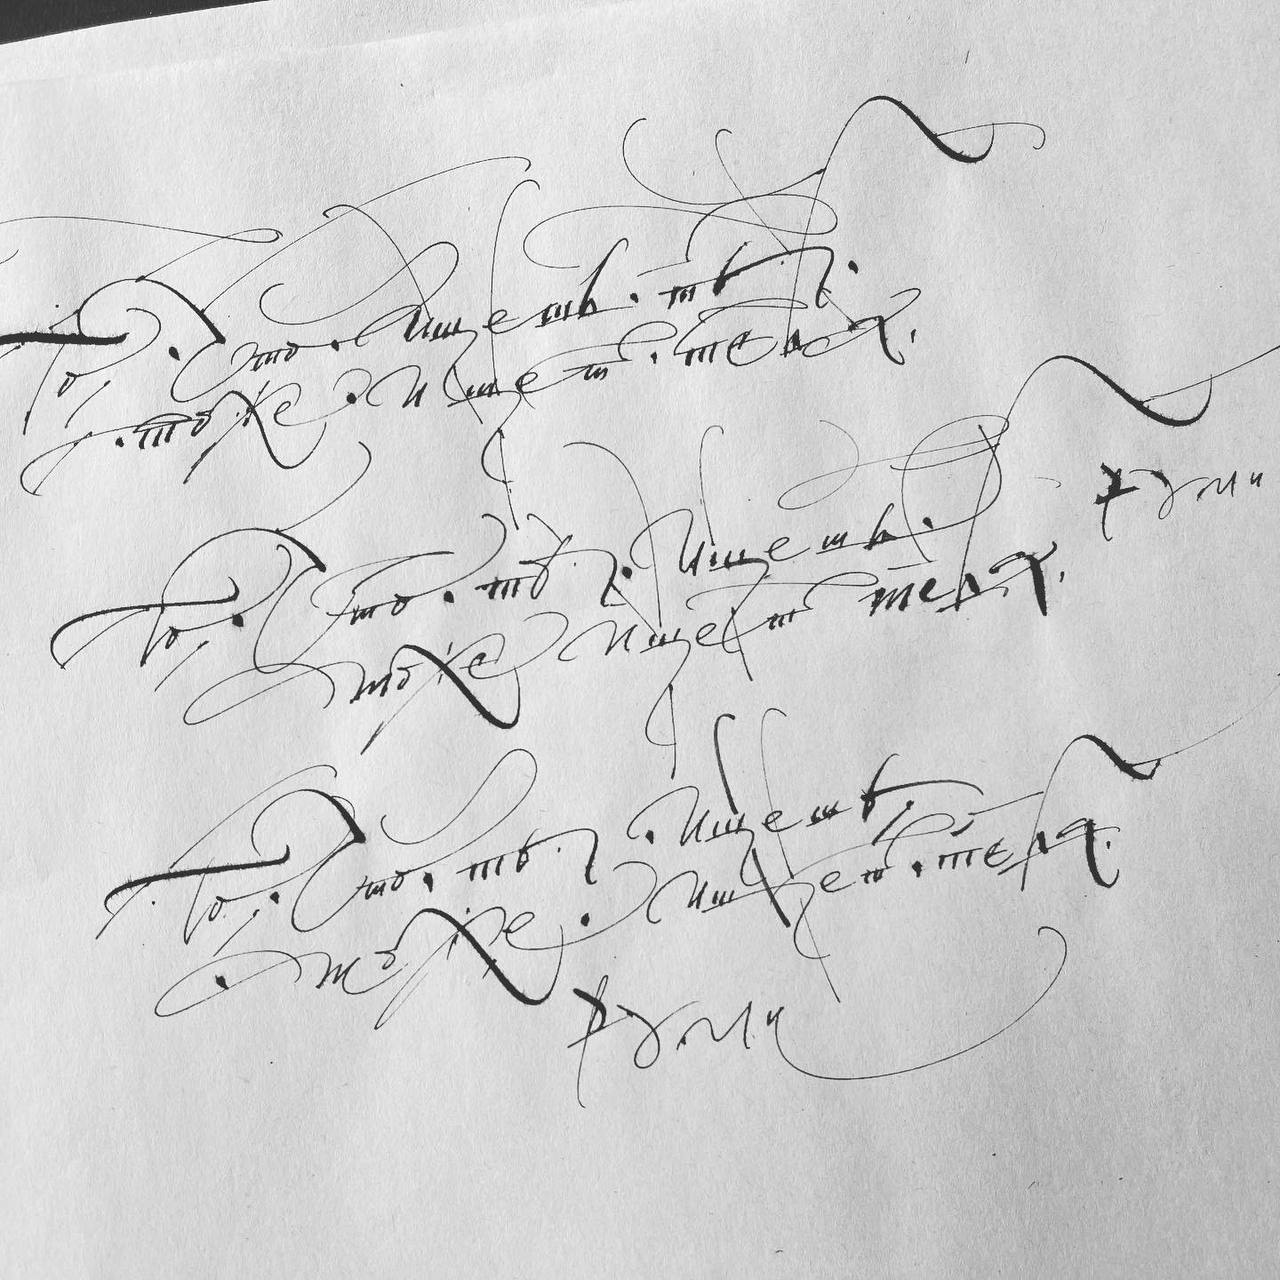 То, что ищешь ты
тоже ищет тебя.
То, что ты ищешь
тоже ищет тебя.
Руми
То, что ты ищешь,
тоже ищет тебя.
Руми